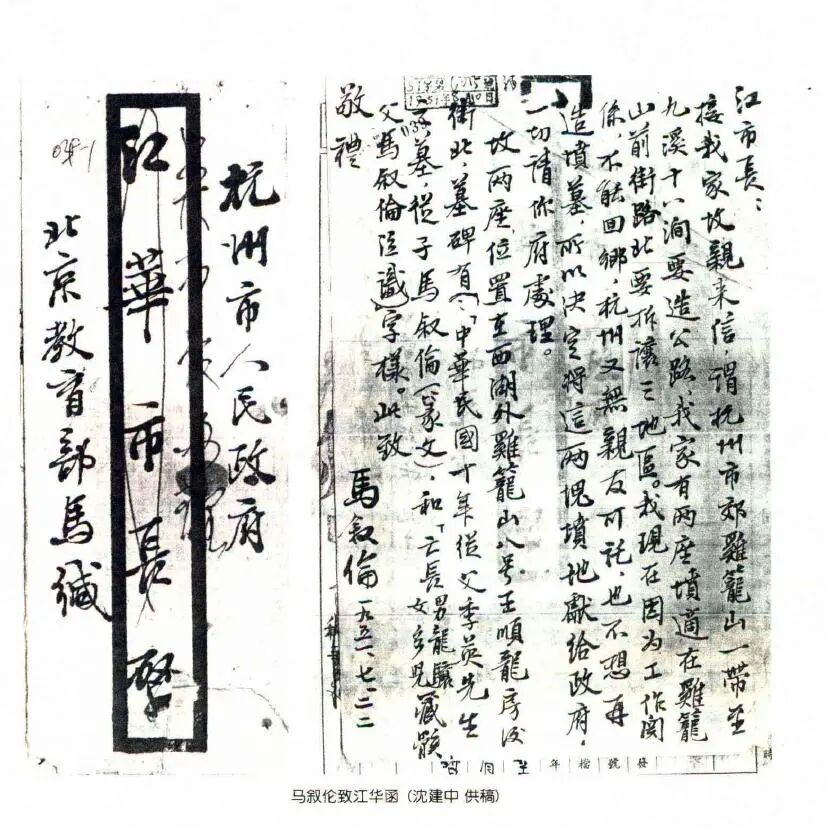 杭州市人民政府
江華市長啓
北京教育部馬緘
江市長：
接我家故親来信，謂杭州市郊雞籠山一帶至
九溪十八澗要造公路，我家有两座墳適在雞籠
山前街路北要拆讓之地區。我現在因为工作関
係，不能回鄉，杭州又無親友可託，也不想再
造墳墓，所以决定将這两塊墳地獻给政府，
一切請你府處理。
坟两座，位置在西湖外雞籠山八号王順龍房後
街北，墓碑有(一)「中華民國十年從父季英先生
之墓，從子馬叙倫(篆文)，和「亡長男龍驤女兒藏骸
父馬叙倫泣識」字樣。此致
敬禮
馬叙倫 一九五一、七、二二
發號檔年
马叙伦致江华函（沈建中 供稿）